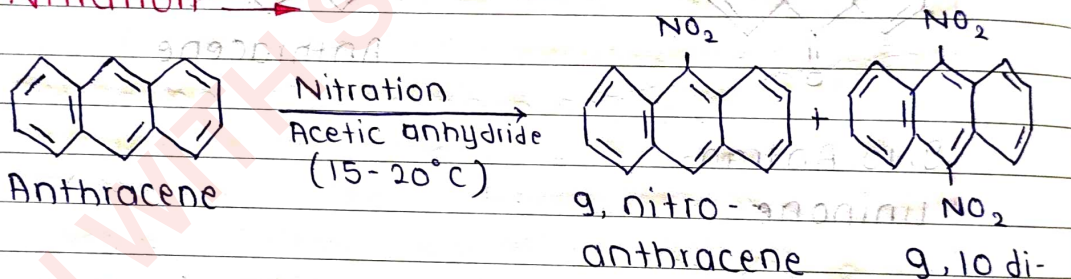 Nitration
NO2 NO2
Nitration
Acetic anhydride
(15-20°C)
+
Anthracene
9, nitro-
anthracene
NO2
9,10 di-